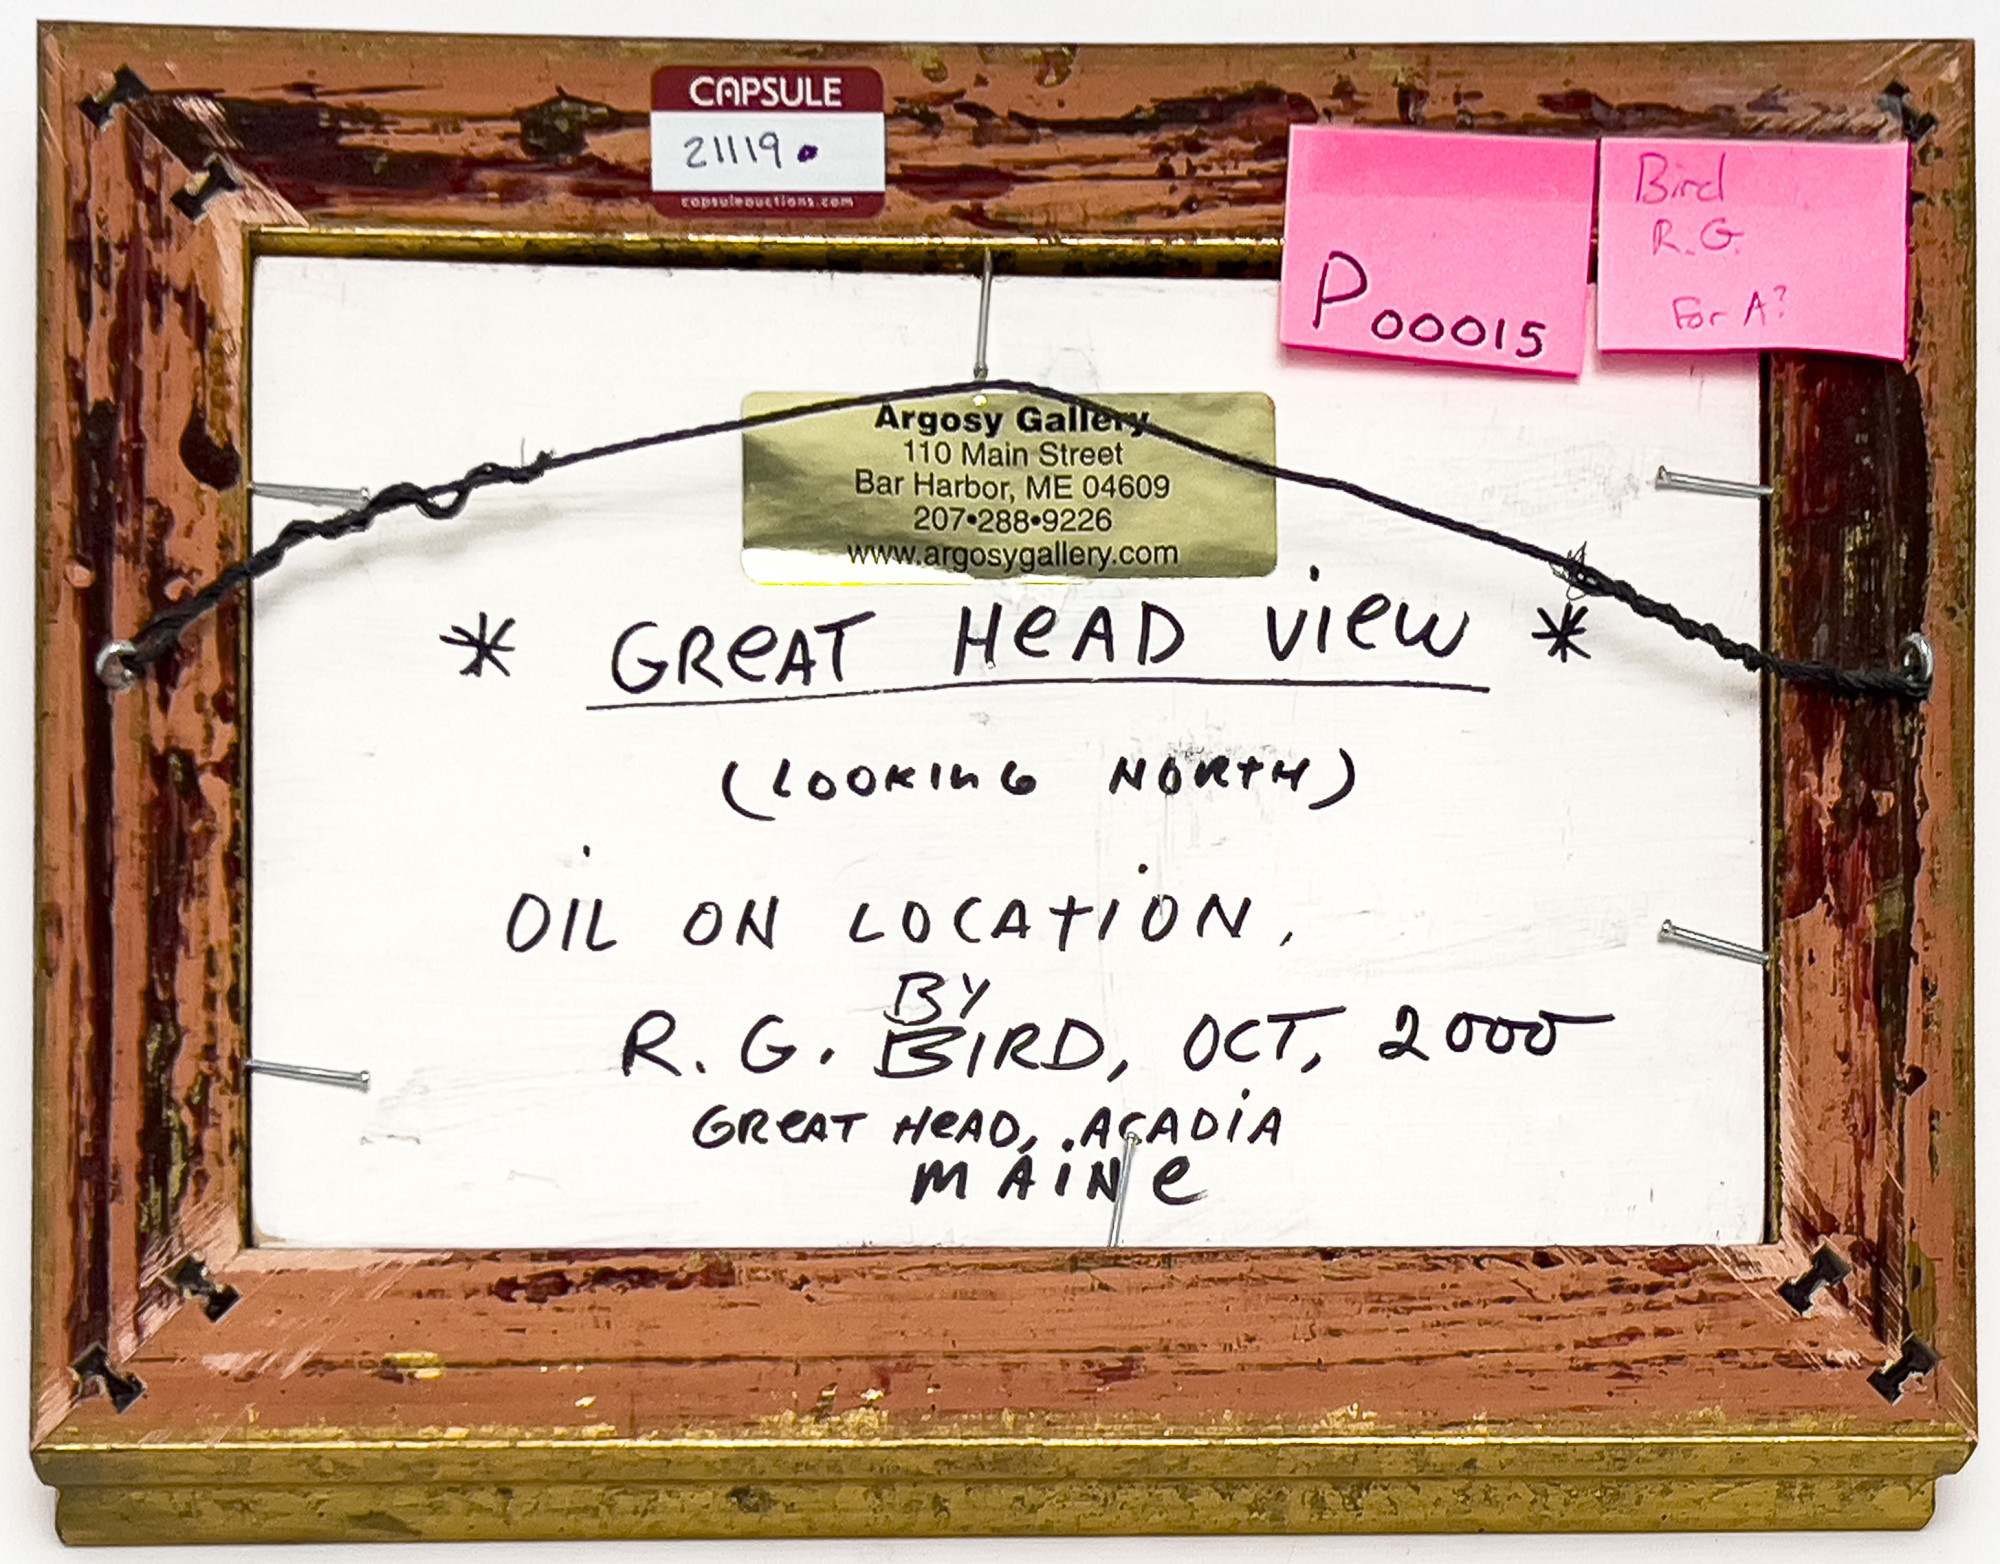 CAPSULE
21119.
capsuleauctions.com
P00015
Bird
R.G.
For A?
Argosy Gallery
110 Main Street
Bar Harbor, ME 04609
207•288•9226
www.argosygallery.com
* GReAT HeAD View *
(LOOKING NORTH)
OIL ON LOCATION,
BY
R. G. BIRD, OCT, 2000
GReAT HeAD, ACADiA
MAiNe